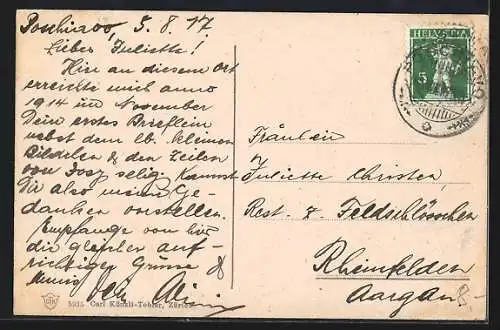 Poschiavo, 5.8.17
Liebes Juliette!
Hier an diesem Ort
erreichte mich anno
1914 im November
Dein erstes Brieflein
nebst dem lb. kleinen
Bildchen & den Zeilen
von Josy selig. Kannst
Dir also meine Ge-
danken vorstellen.
Empfange von hier
die gleichen auf-
richtigen Grüsse &
HELVETIA
5
Fräulein
Juliette Christen
Rest. z. Feldschlösschen
Rheinfelden
Aargau
5915 Carl Künzli-Tobler, Zürich